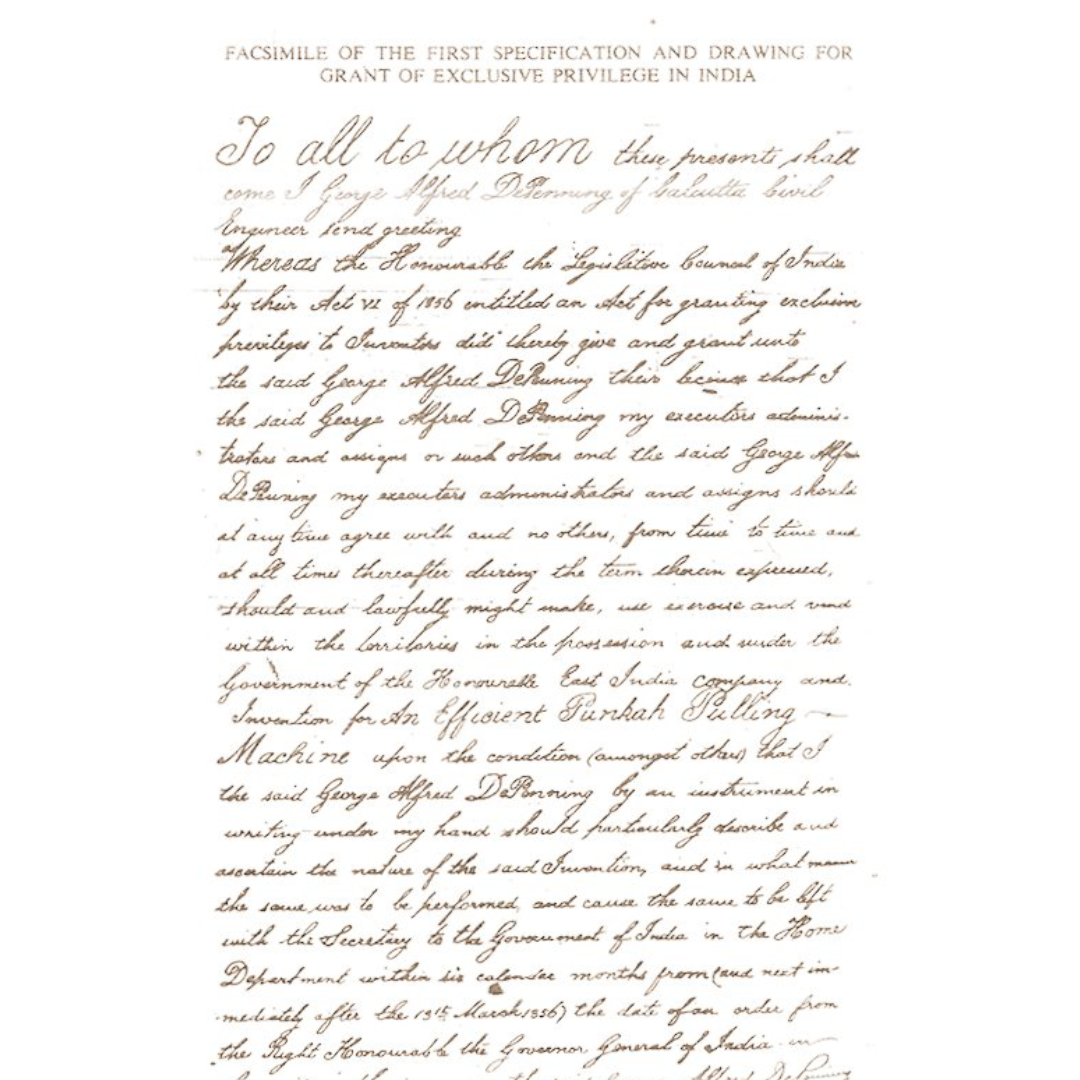 FACSIMILE OF THE FIRST SPECIFICATION AND DRAWING FOR
GRANT OF EXCLUSIVE PRIVILEGE IN INDIA
To all to whom these presents shall
come I George Alfred DePenning of Calcutta Civil
Engineer send greeting
Whereas the Honourable the Legislative Council of India
by their Act VI of 1856 entitled an Act for granting exclusive
privileges to Inventors did thereby give and grant unto
the said George Alfred DePenning their that I
the said George Alfred DePenning my executors adminis-
trators and assigns or such others and the said George Alfred
DePenning my executors administrators and assigns should
at any time agree with and no others, from time to time and
at all times thereafter during the term therein expressed,
should and lawfully might make, use exercise and vend
within the territories in the possession and under the
Government of the Honourable East India company and.
Invention for An Efficient Punkah Pulling
Machine upon the condition (amongst others) that I
the said George Alfred DePenning by an instrument in
writing under my hand should particularly describe and
ascertain the nature of the said Invention, and in what
the same was to be performed, and cause the same to be left
with the Secretary to the Government of India in the Home
Department within six calender months from (and next im-
mediately after the March 1856) the date of an order from
the Right Honourable the Governor General of India in
Alfred DePenning